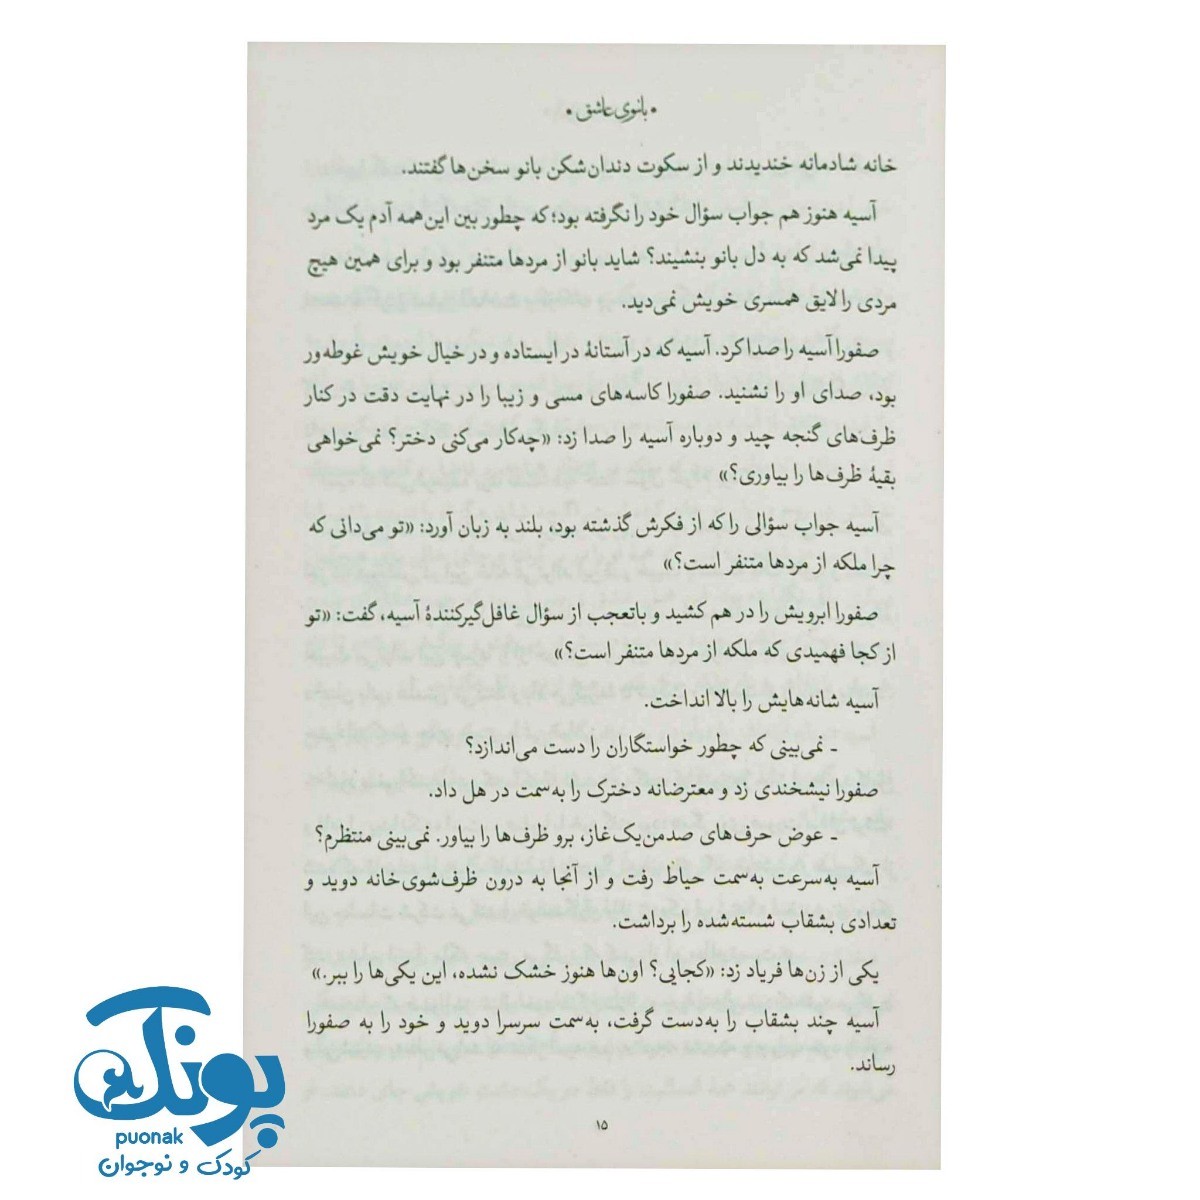 • بانوی عاشق •
خانه شادمانه خندیدند و از سکوت دندان‌شکن بانو سخن‌ها گفتند.
آسیه هنوز هم جواب سؤال خود را نگرفته بود؛ که چطور بین این‌همه آدم یک مرد
پیدا نمی‌شد که به دل بانو بنشیند؟ شاید بانو از مردها متنفر بود و برای همین هیچ
مردی را لایق همسری خویش نمی‌دید.
صفورا آسیه را صدا کرد. آسیه که در آستانهٔ در ایستاده و در خیال خویش غوطه‌ور
بود، صدای او را نشنید. صفورا کاسه‌های مسی و زیبا را در نهایت دقت در کنار
ظرف‌های گنجه چید و دوباره آسیه را صدا زد: «چه‌کار می‌کنی دختر؟ نمی‌خواهی
بقیهٔ ظرف‌ها را بیاوری؟»
آسیه جواب سؤالی را که از فکرش گذشته بود، بلند به زبان آورد: «تو می‌دانی که
چرا ملکه از مردها متنفر است؟»
صفورا ابرویش را در هم کشید و باتعجب از سؤال غافل‌گیرکنندهٔ آسیه، گفت: «تو
از کجا فهمیدی که ملکه از مردها متنفر است؟»
آسیه شانه‌هایش را بالا انداخت.
ـ نمی‌بینی که چطور خواستگاران را دست می‌اندازد؟
صفورا نیشخندی زد و معترضانه دخترک را به‌سمت در هل داد.
ـ عوض حرف‌های صدمن‌یک‌غاز، برو ظرف‌ها را بیاور. نمی‌بینی منتظرم؟
آسیه به‌سرعت به‌سمت حیاط رفت و از آنجا به درون ظرف‌شوی‌خانه دوید و
تعدادی بشقاب شسته‌شده را برداشت.
یکی از زن‌ها فریاد زد: «کجایی؟ اون‌ها هنوز خشک نشده، این یکی‌ها را ببر.»
آسیه چند بشقاب را به‌دست گرفت، به‌سمت سرسرا دوید و خود را به صفورا
رساند.
۱۵
پونک
puonak
کودک و نوجوان